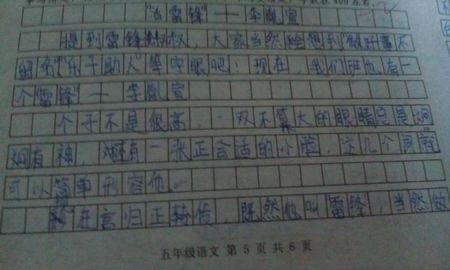 "活雷锋"——李胤宣
提到雷锋叔叔，大家当然会想到"做好事不
留名""乐于助人"等字眼吧！现在，我们班也有一
个"雷锋"——李胤宣
个子不是很高，一双不算大的眼睛总是炯
炯有神，还有一张正合适的小嘴，这几个词
可以简单形容他。
在言归正转传，既然他叫"雷锋"，当然做
五年级语文 第 5 页 共 6 页